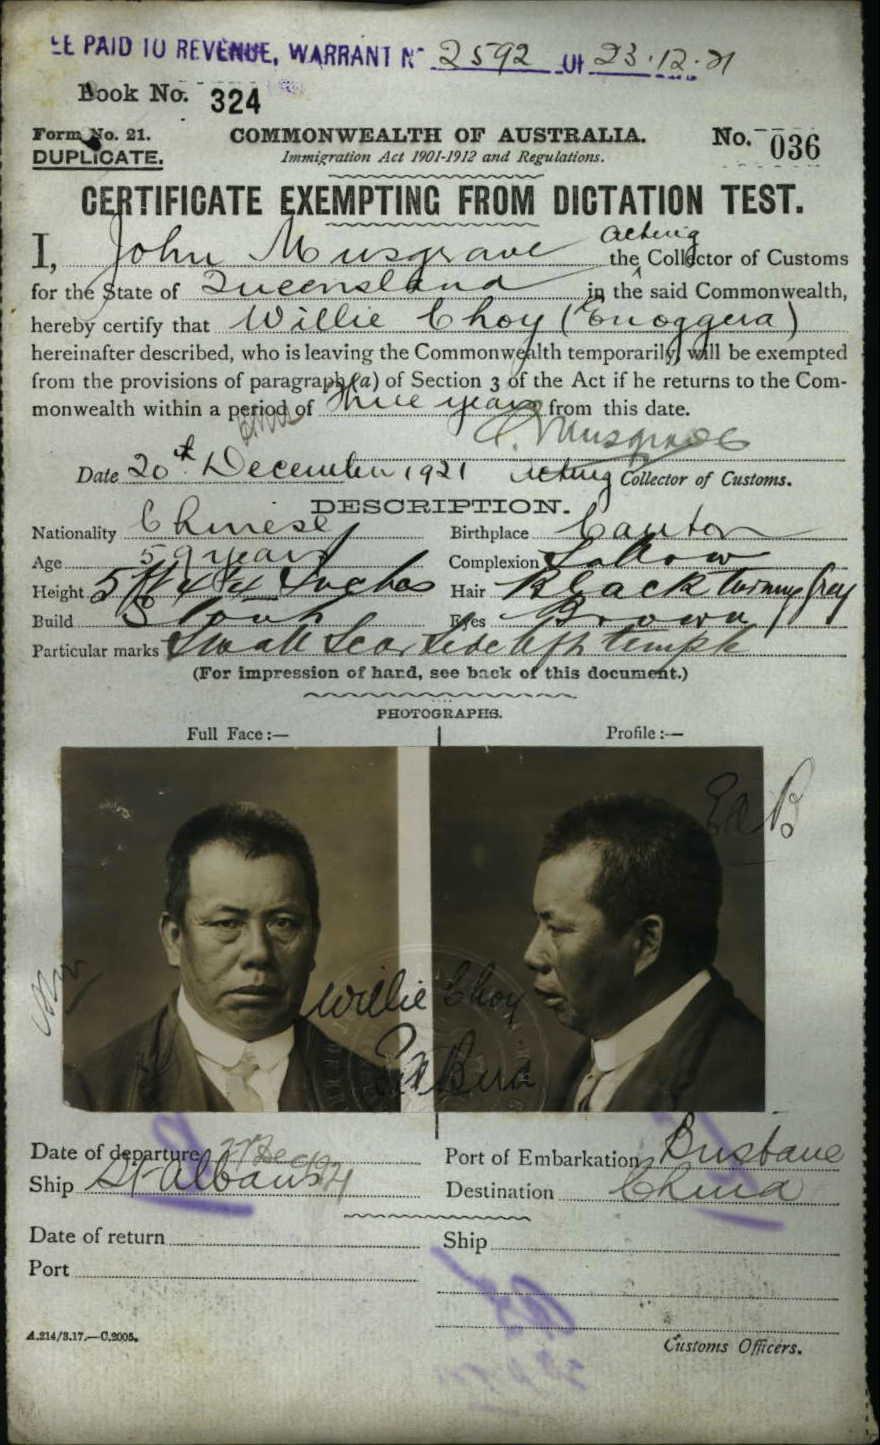 EE PAID TO REVENUE, WARRANT No 2592 Of 23.12.21
Book No. 324
Form No. 21. COMMONWEALTH OF AUSTRALIA. No. 036
DUPLICATE. Immigration Act 1901-1912 and Regulations.
CERTIFICATE EXEMPTING FROM DICTATION TEST.
I, John Musgrave the Acting Collector of Customs
for the State of Queensland in the said Commonwealth,
hereby certify that Willie Choy (Enoggera)
hereinafter described, who is leaving the Commonwealth temporarily, will be exempted
from the provisions of paragraph (a) of Section 3 of the Act if he returns to the Com-
monwealth within a period of three years from this date.
J. Musgrave
Date 20th December 1921 Acting Collector of Customs.
DESCRIPTION.
Nationality Chinese Birthplace Canton
Age 59 years Complexion Sallow
Height 5 ft 4 1/4 Inches Hair Black turning Grey
Build Stout Eyes Brown
Particular marks Small Scar Side left temple
(For impression of hand, see back of this document.)
PHOTOGRAPHS.
Full Face :— Profile :—
Willie Choy
Date of departure Port of Embarkation Brisbane
Ship St Albans Destination China
Date of return Ship
Port
A.214/3.17.—C.2005. Customs Officers.